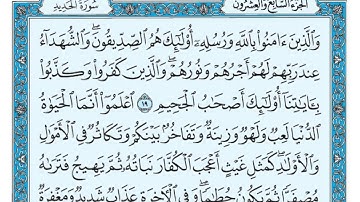 الجزء السابع والعشرون سورة الحديد
وَالَّذِينَ ءَامَنُوا۟ بِٱللَّهِ وَرُسُلِهِۦٓ أُو۟لَٰٓئِكَ هُمُ ٱلصِّدِّيقُونَ ۖ وَٱلشُّهَدَآءُ
عِندَ رَبِّهِمْ لَهُمْ أَجْرُهُمْ وَنُورُهُمْ ۖ وَٱلَّذِينَ كَفَرُوا۟ وَكَذَّبُوا۟
بِـَٔايَٰتِنَآ أُو۟لَٰٓئِكَ أَصْحَٰبُ ٱلْجَحِيمِ ١٩ ٱعْلَمُوٓا۟ أَنَّمَا ٱلْحَيَوٰةُ
ٱلدُّنْيَا لَعِبٌ وَلَهْوٌ وَزِينَةٌ وَتَفَاخُرٌۢ بَيْنَكُمْ وَتَكَاثُرٌ فِى ٱلْأَمْوَٰلِ
وَٱلْأَوْلَٰدِ ۖ كَمَثَلِ غَيْثٍ أَعْجَبَ ٱلْكُفَّارَ نَبَاتُهُۥ ثُمَّ يَهِيجُ فَتَرَىٰهُ
مُصْفَرًّا ثُمَّ يَكُونُ حُطَٰمًا ۖ وَفِى ٱلْءَاخِرَةِ عَذَابٌ شَدِيدٌ وَمَغْفِرَةٌ